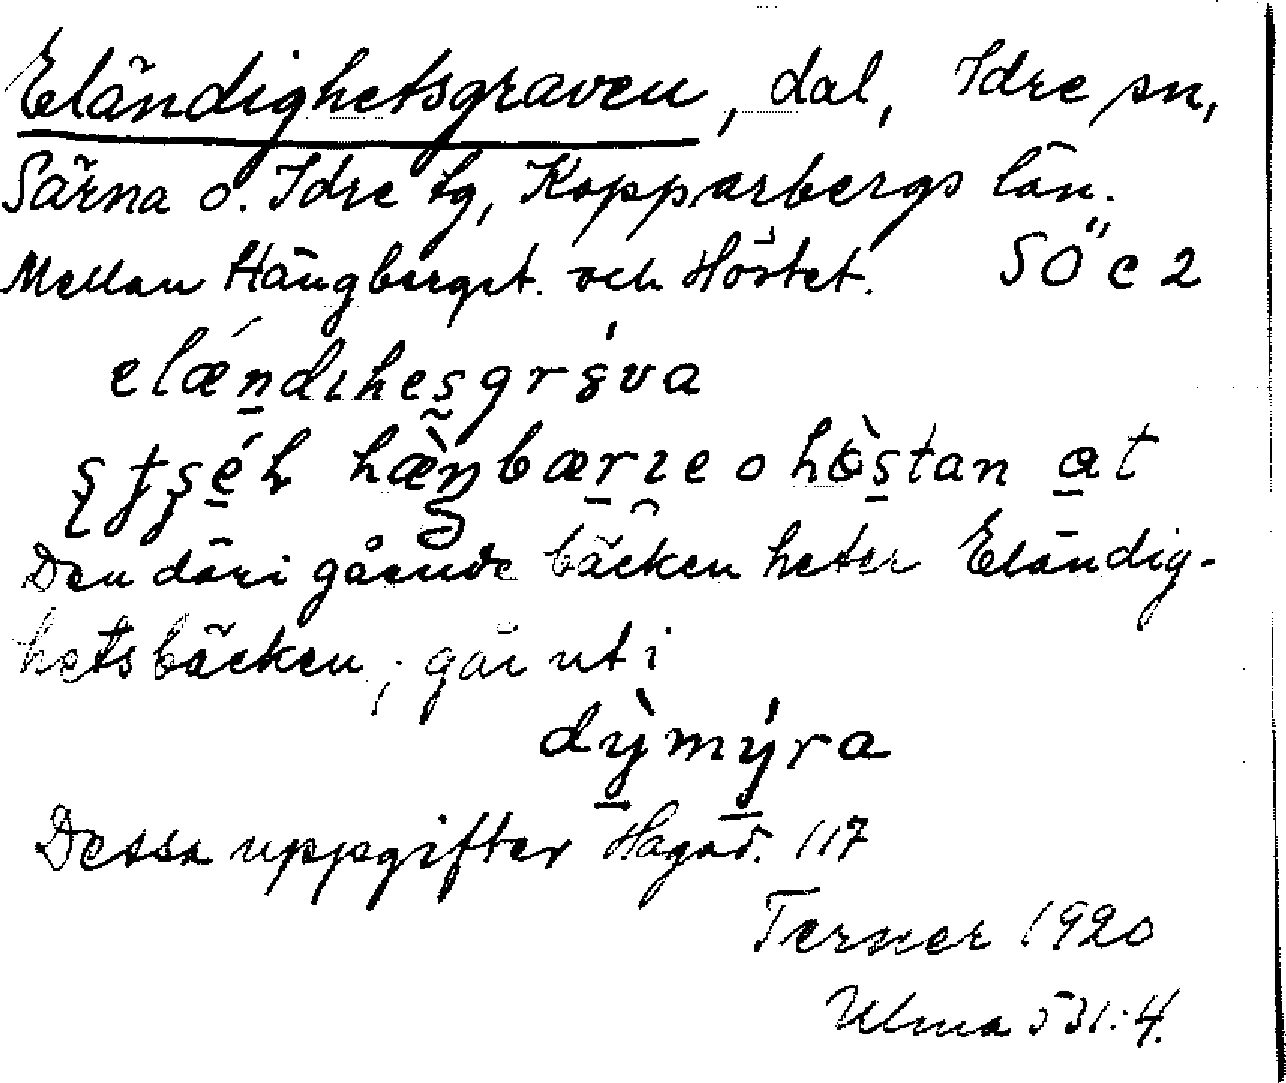 Eländighetsgraven, dal, Idre sn,
Särna o. Idre tg, Kopparbergs län.
Mellan Hängberget och Höstet. SÖ c 2
elǽn̠dıhes̠grɞ́va
hæ̀ŋbær̠ıe o hɞ̀s̠tan a̠t
Den däri gående bäcken heter Eländig-
hetsbäcken, går ut i
dỳ̠mý̠ra
Dessa uppgifter 117
Terner 1920
Ulma 531:4.